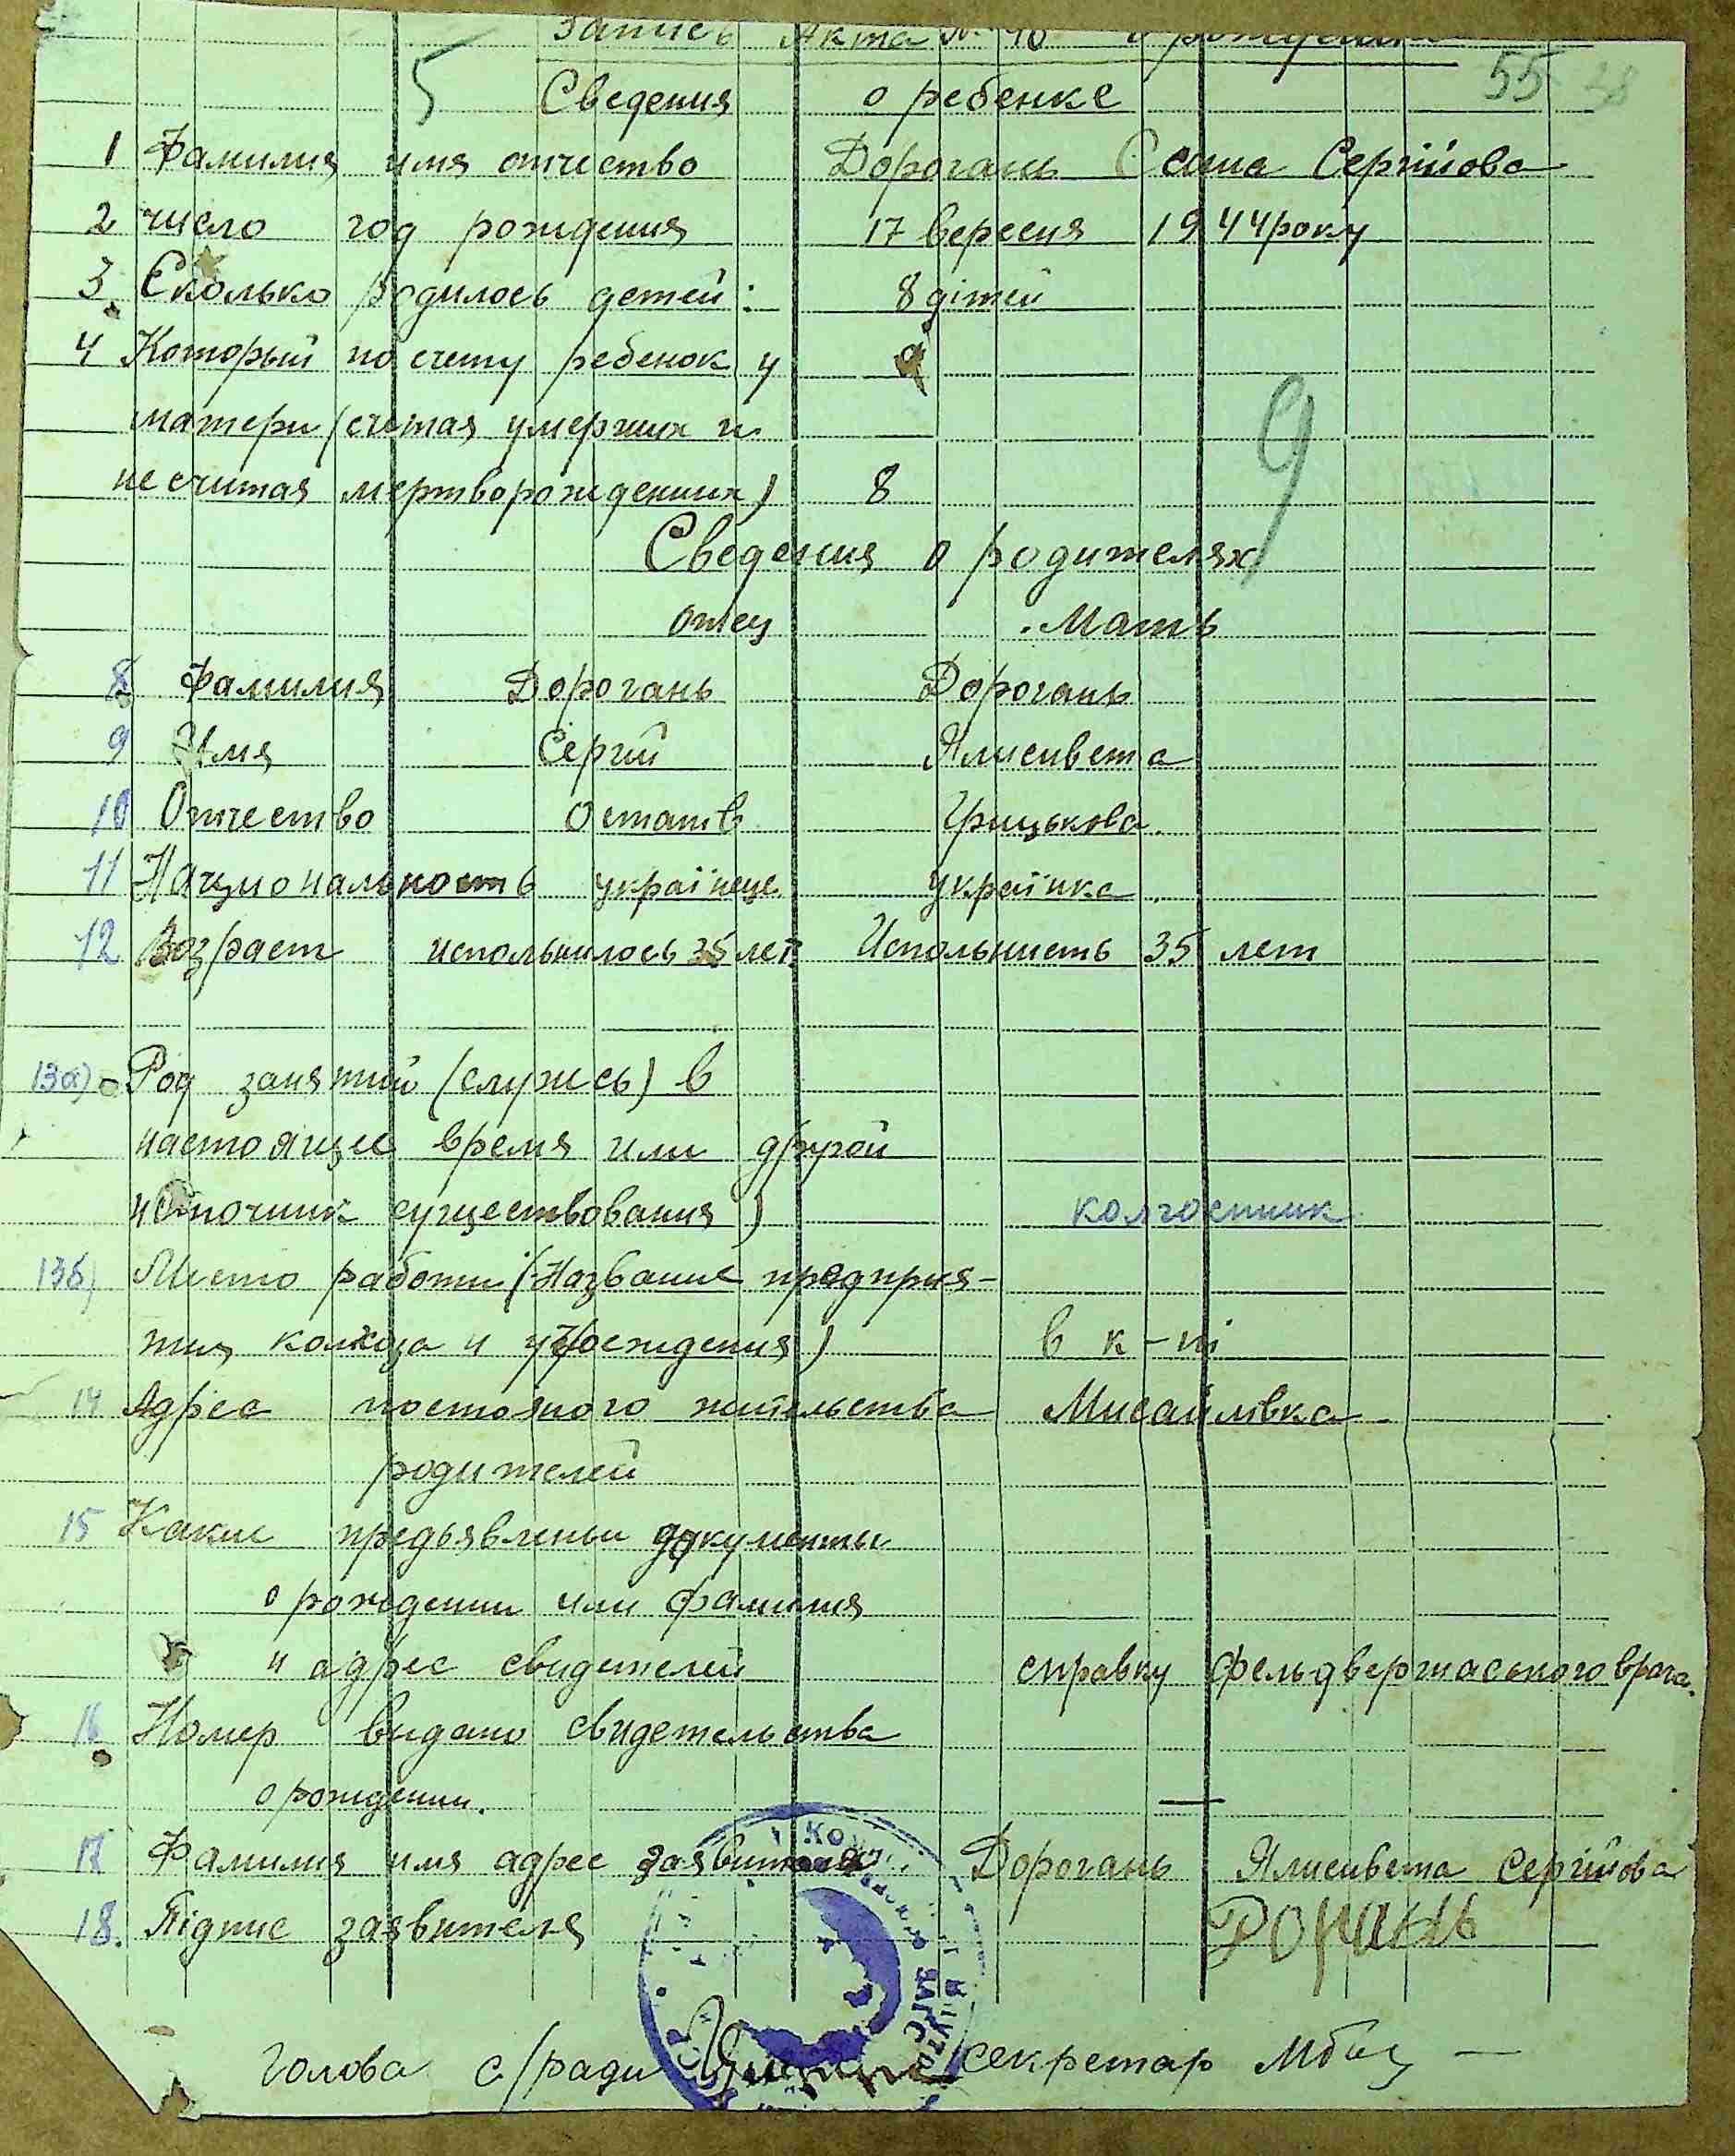 Запись Акта № 40 о рождении
5 55
Сведения о ребенке
1 Фамилия имя отчество Дорогань Саша Сергійова
2 число год рождения 17 вересня 1944 року
3. Сколько родилось детей: 8 дітей
4 Который по счету ребенок у
матери (считая умерших и
9
не считая мертворожденних) 8
Сведения о родителях
отец Мать
8 Фамилия Дорогань Дорогань
9 Имя Сергій Ялисивета
10 Отчество Остапів Грицькова.
11 Национальность українец українка
12 Возраст испольнилось 35 лет. Испольнисть 35 лет
13а) Род занятий (служсь) в
настоящие время или другой
источник существования) колгоспник
13б) Место работи (Название предприя-
тия колхоза и учреждения) в к-пі
14 Адрес постояного жительства Мисайлівка
родителей
15 Какие предьявлены документы
о рождении или фамилия
и адрес свидетелей справку фельдвершаського врача.
16 Номер видано свидетельства
о рождении. —
17 Фамилия имя адрес заявителя Дорогань Ялисивета Сергійова
18. Підпис заявителя Рогань
ЗАГС
Голова с/ради секретар